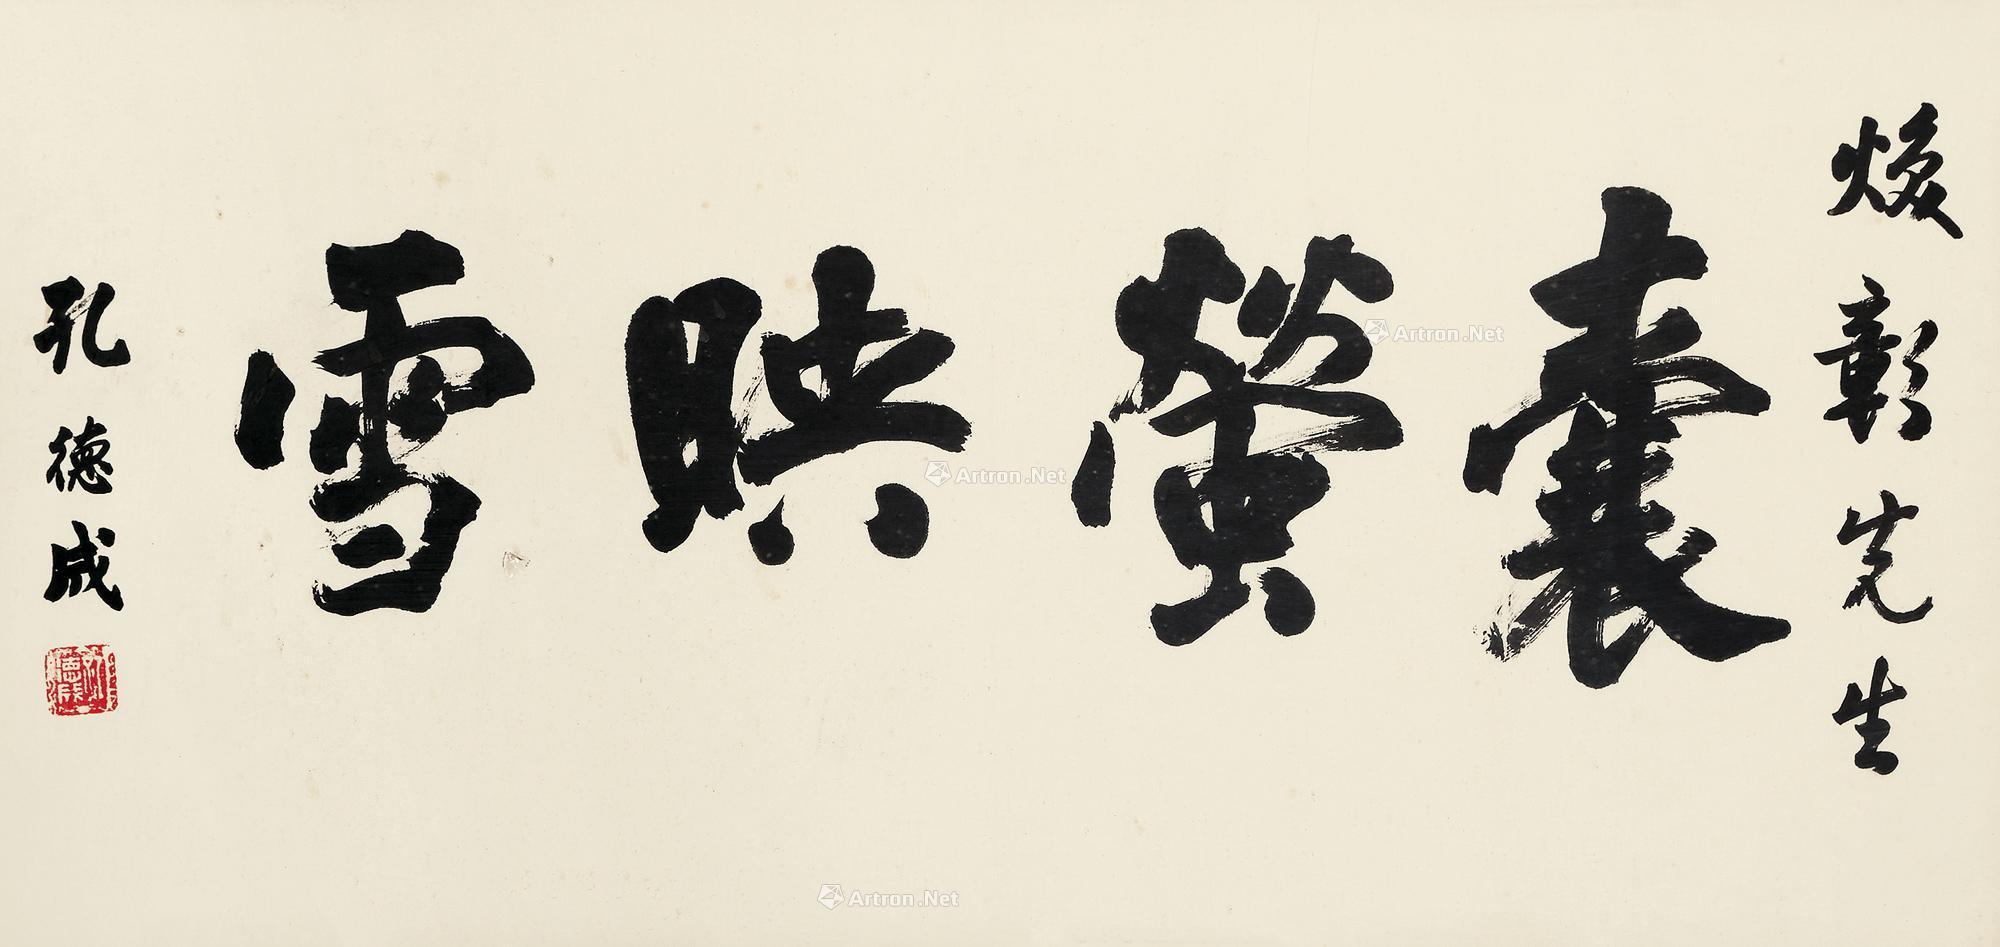 焌彰先生
囊螢映雪
孔德成
Artron.Net
Artron.Net
Artron.Net
Artron.Net